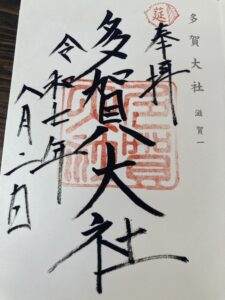 多賀大社 滋賀一
奉拝
多賀大社
令和七年
八月二日
莚